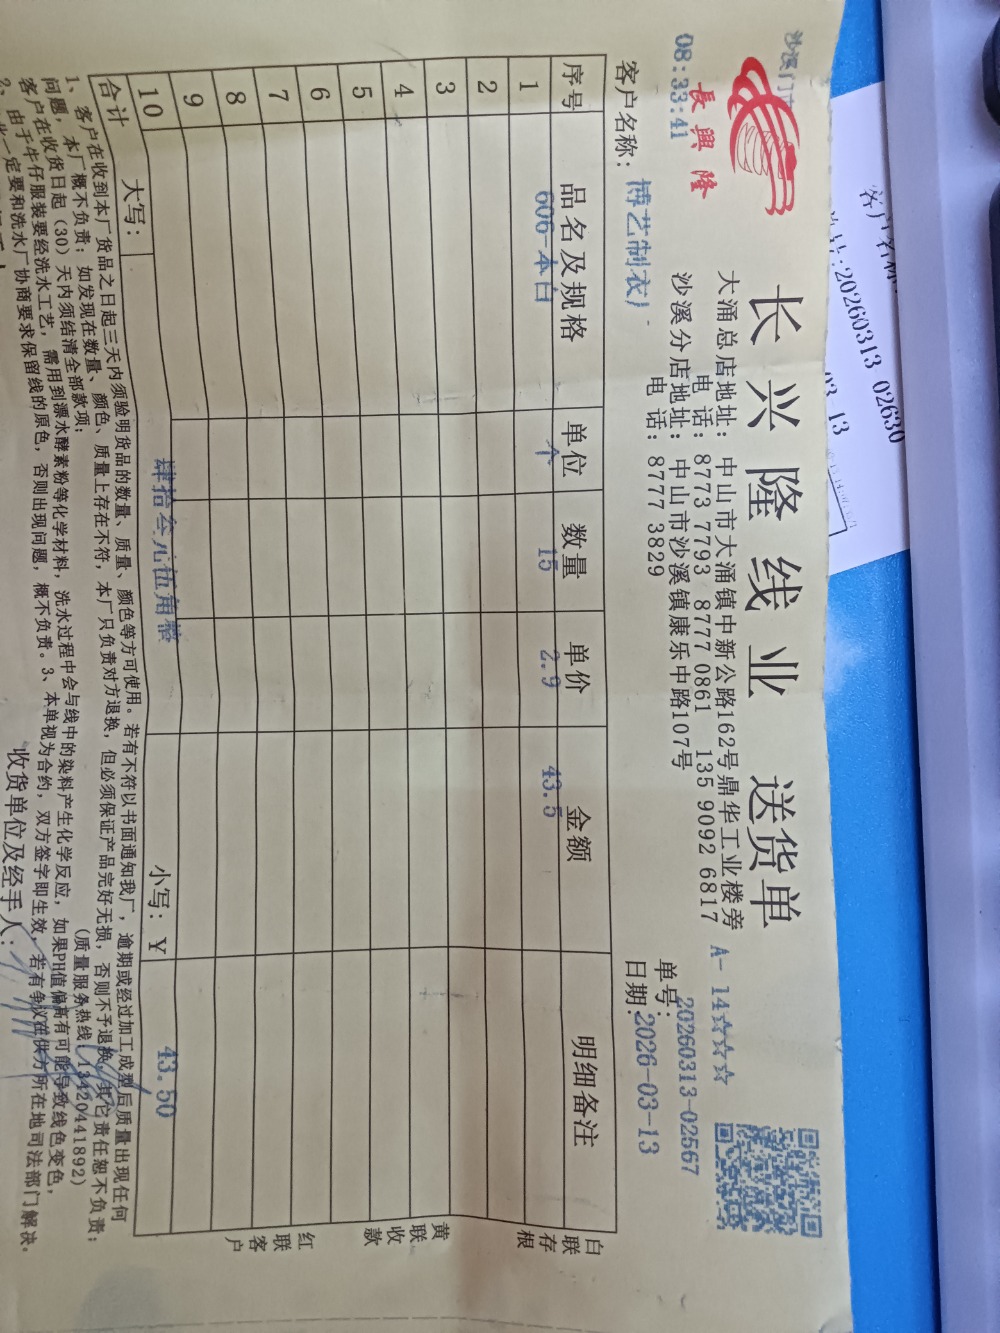 沙溪门
08:33:41
長興隆
长兴隆线业 送货单
大涌总店地址：中山市大涌镇中新公路162号鼎华工业楼旁
电 话：8773 7793 8777 0861 135 9092 6817
沙溪分店地址：中山市沙溪镇康乐中路107号
电 话：8777 3829
A-14☆☆☆
单号：20260313-02567
日期：2026-03-13
客户名称：博艺制衣厂
序号 品名及规格 单位 数量 单价 金额 明细备注
1 606-本白 个 15 2.9 43.5
2
3
4
5
6
7
8
9
10
合计 大写：肆拾叁元伍角整 小写：¥ 43.50
白联存根
黄联收款
红联客户
1、客户在收到本厂货品之日起三天内须验明货品的数量、质量、颜色等方可使用。若有不符以书面通知我厂，逾期或经过加工成型后质量出现任何
问题，本厂概不负责；如发现在数量、颜色、质量上存在不符，本厂只负责对方退换，但必须保证产品完好无损，否则不予退换，其它责任恕不负责；
客户在收货日起（30）天内须结清全部款项； （质量服务热线：13420441892）
2、由于牛仔服装要经洗水工艺，需用到漂水酵素粉等化学材料，洗水过程中会与线中的染料产生化学反应，如果PH值偏高有可能导致线色变色，
一定要和洗水厂协商要求保留线的原色，否则出现问题，概不负责。3、本单视为合约，双方签字即生效，若有争议在供方所在地司法部门解决。
收货单位及经手人：
客户名称
:20260313-02630
03-13